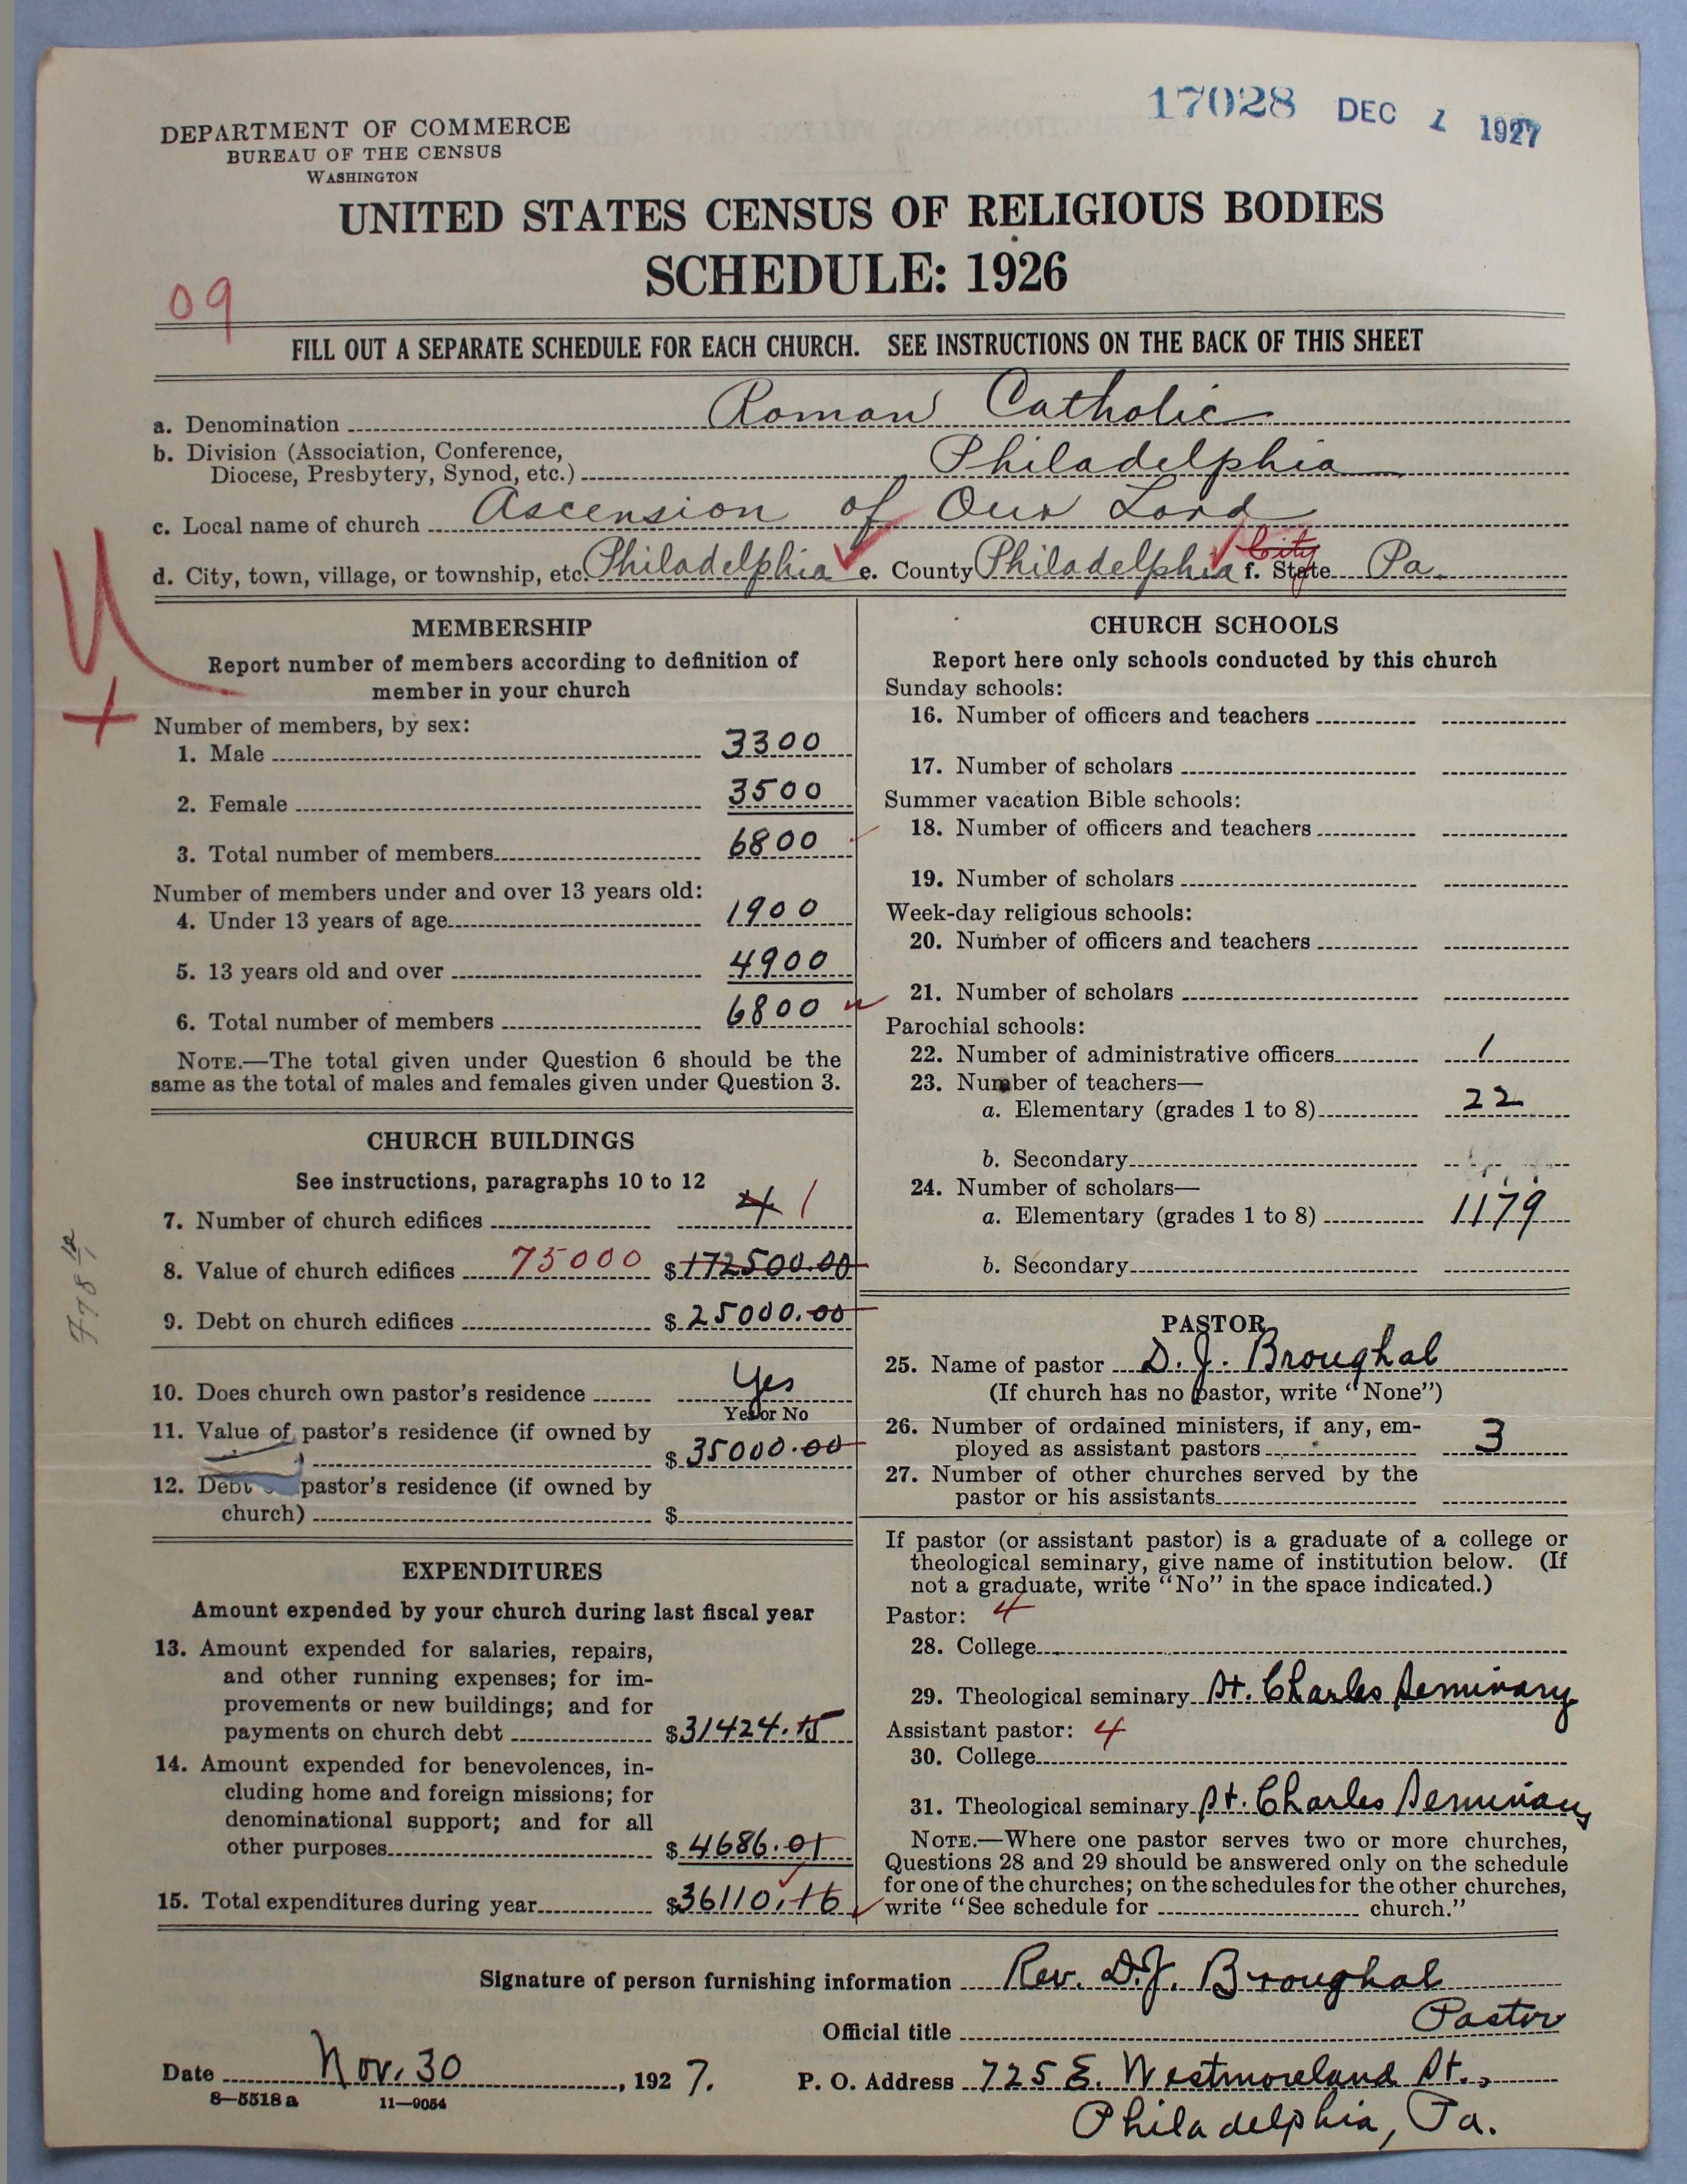 17028 DEC 1 1927
DEPARTMENT OF COMMERCE
BUREAU OF THE CENSUS
WASHINGTON
UNITED STATES CENSUS OF RELIGIOUS BODIES
SCHEDULE: 1926
09
FILL OUT A SEPARATE SCHEDULE FOR EACH CHURCH. SEE INSTRUCTIONS ON THE BACK OF THIS SHEET
a. Denomination Roman Catholic
b. Division (Association, Conference,
Diocese, Presbytery, Synod, etc.) Philadelphia
c. Local name of church Ascension of Our Lord
City
d. City, town, village, or township, etc. Philadelphia e. County Philadelphia f. State Pa.
MEMBERSHIP
Report number of members according to definition of
member in your church
Number of members, by sex:
1. Male 3300
2. Female 3500
3. Total number of members 6800
Number of members under and over 13 years old:
4. Under 13 years of age 1900
5. 13 years old and over 4900
6. Total number of members 6800
NOTE.—The total given under Question 6 should be the
same as the total of males and females given under Question 3.
CHURCH BUILDINGS
See instructions, paragraphs 10 to 12
7. Number of church edifices 4 1
8. Value of church edifices 75000 $172500.00
9. Debt on church edifices $25000.00
10. Does church own pastor's residence Yes
Yes or No
11. Value of pastor's residence (if owned by
) $35000.00
12. Debt pastor's residence (if owned by
church) $
EXPENDITURES
Amount expended by your church during last fiscal year
13. Amount expended for salaries, repairs,
and other running expenses; for im-
provements or new buildings; and for
payments on church debt $31424.15
14. Amount expended for benevolences, in-
cluding home and foreign missions; for
denominational support; and for all
other purposes $4686.01
15. Total expenditures during year $36110.16
CHURCH SCHOOLS
Report here only schools conducted by this church
Sunday schools:
16. Number of officers and teachers
17. Number of scholars
Summer vacation Bible schools:
18. Number of officers and teachers
19. Number of scholars
Week-day religious schools:
20. Number of officers and teachers
21. Number of scholars
Parochial schools:
22. Number of administrative officers 1
23. Number of teachers—
a. Elementary (grades 1 to 8) 22
b. Secondary
24. Number of scholars—
a. Elementary (grades 1 to 8) 1179
b. Secondary
PASTOR
25. Name of pastor D. J. Broughal
(If church has no pastor, write "None")
26. Number of ordained ministers, if any, em-
ployed as assistant pastors 3
27. Number of other churches served by the
pastor or his assistants
If pastor (or assistant pastor) is a graduate of a college or
theological seminary, give name of institution below. (If
not a graduate, write "No" in the space indicated.)
Pastor: 4
28. College
29. Theological seminary St. Charles Seminary
Assistant pastor: 4
30. College
31. Theological seminary St. Charles Seminary
NOTE.—Where one pastor serves two or more churches,
Questions 28 and 29 should be answered only on the schedule
for one of the churches; on the schedules for the other churches,
write "See schedule for church."
Signature of person furnishing information Rev. D. J. Broughal
Official title Pastor
Date Nov. 30, 1927. P. O. Address 725 E. Westmoreland St.,
8—5518 a 11—9054
Philadelphia, Pa.